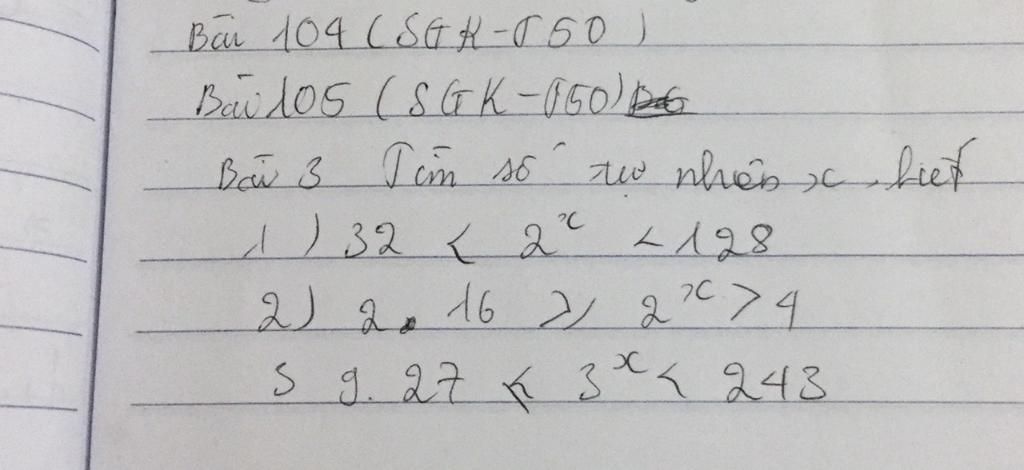 Bài 104 (SGK-T50)
Bài 105 (SGK-T50)
Bài 3 Tìm số tự nhiên x, biết
1) 32 < 2^x < 128
2) 2. 16 ≥ 2^x > 4
3 9. 27 ≤ 3^x < 243